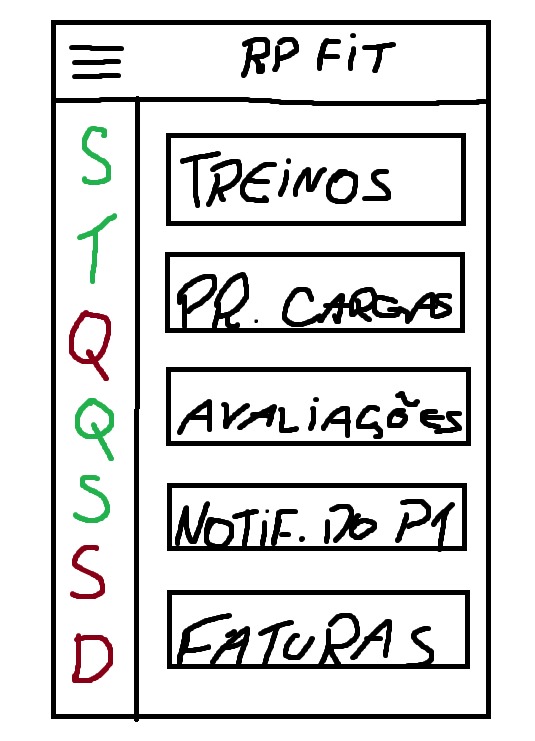 RP FiT
S
T
Q
Q
S
S
D
TREiNOS
PR. CARGAS
AVALiAÇÕES
NOTiF. DO P1
FATURAS